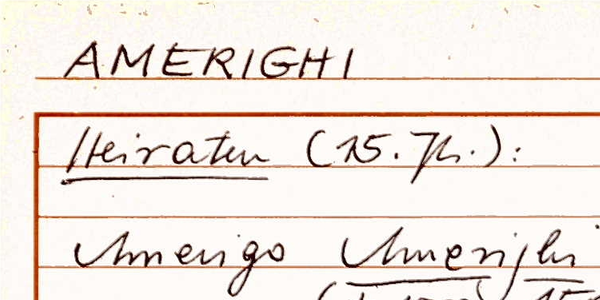 AMERIGHI
Heiraten (15. Jh.):
Amerigo Amerighi